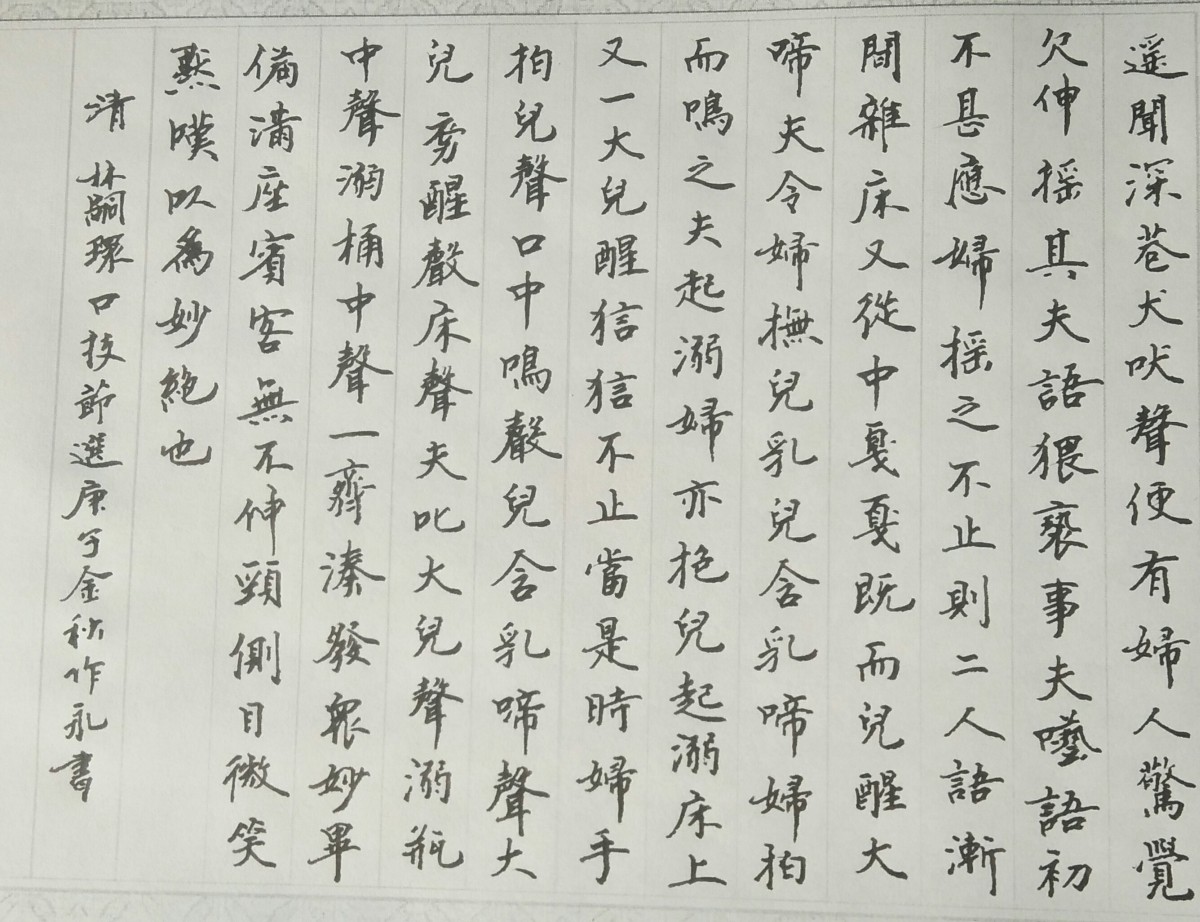 遥聞深巷犬吠聲便有婦人驚覺
欠伸摇其夫語猥褻事夫囈語初
不甚應婦摇之不止則二人語漸
間雜床又從中戛戛既而兒醒大
啼夫令婦撫兒乳兒含乳啼婦拍
而嗚之夫起溺婦亦抱兒起溺床上
又一大兒醒狺狺不止當是時婦手
拍兒聲口中嗚聲兒含乳啼聲大
兒剪醒聲床聲夫叱大兒聲溺瓶
中聲溺桶中聲一齊湊發衆妙畢
備滿座賓客無不伸頸側目微笑
默嘆以為妙絶也
清林嗣環口技節選庚子金秋作永書